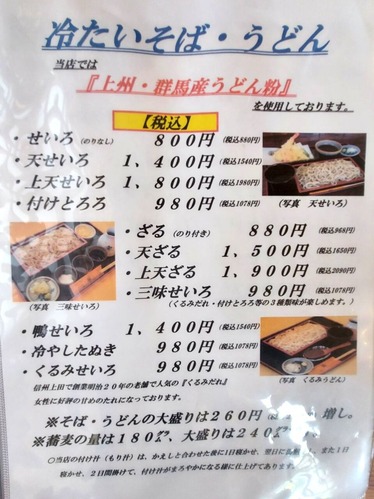 冷たいそば・うどん
当店では
『上州・群馬産うどん粉』
を使用しております。
【税込】
・せいろ (のりなし) 800円 (税込880円)
・天せいろ 1,400円 (税込1540円)
・上天せいろ 1,800円 (税込1980円)
・付けとろろ 980円 (税込1078円)
(写真 天せいろ)
・ざる (のり付き) 880円 (税込968円)
・天ざる 1,500円 (税込1650円)
・上天ざる 1,900円 (税込2090円)
・三味せいろ 980円 (税込1078円)
(くるみだれ・付けとろろ等の3種類味が楽しめます。)
(写真 三味せいろ)
・鴨せいろ 1,400円 (税込1540円)
・冷やしたぬき 980円 (税込1078円)
・くるみせいろ 980円 (税込1078円)
信州上田で創業明治20年の老舗で人気の『くるみだれ』
女性に好評の甘めのたれになっております。
(写真 くるみうどん)
※そば・うどんの大盛りは260円 増し。
※蕎麦の量は180㌘、大盛りは240
〇当店の付け汁(もり汁)は、かえしと合わせた後に1日寝かせ、翌日に また1日
寝かせ、2日間掛けて、付け汁がまろやかになる様に仕上げてあります。